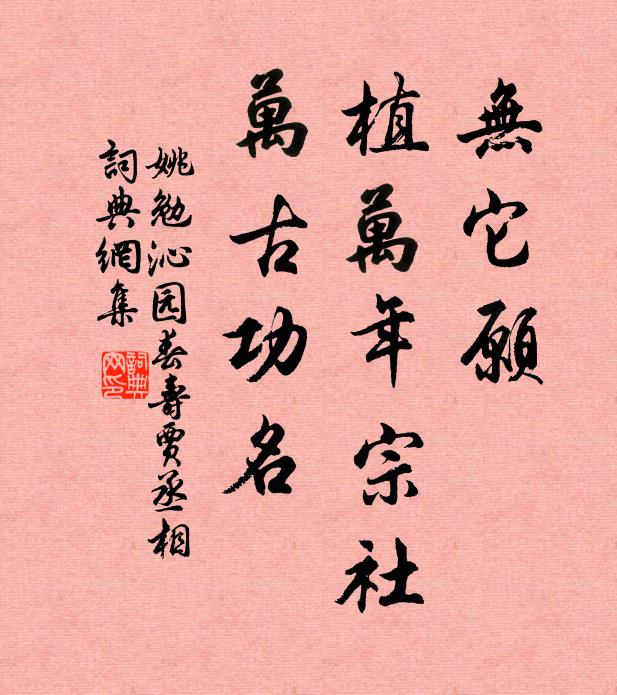 無它願
植萬年宗社
萬古功名
姚勉沁园春壽賈丞相
詞典網集
詞典
网印